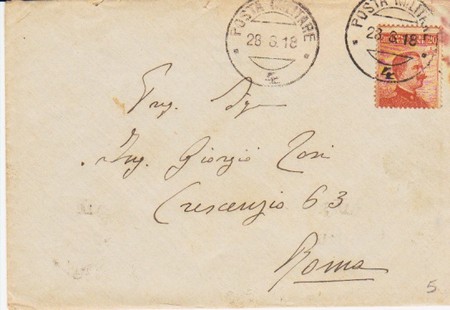 POSTA MILITARE
28.8.18
4
POSTA MILITARE
28.8.18
4
Ing. Giorgio
Crescenzio 63
Roma
5